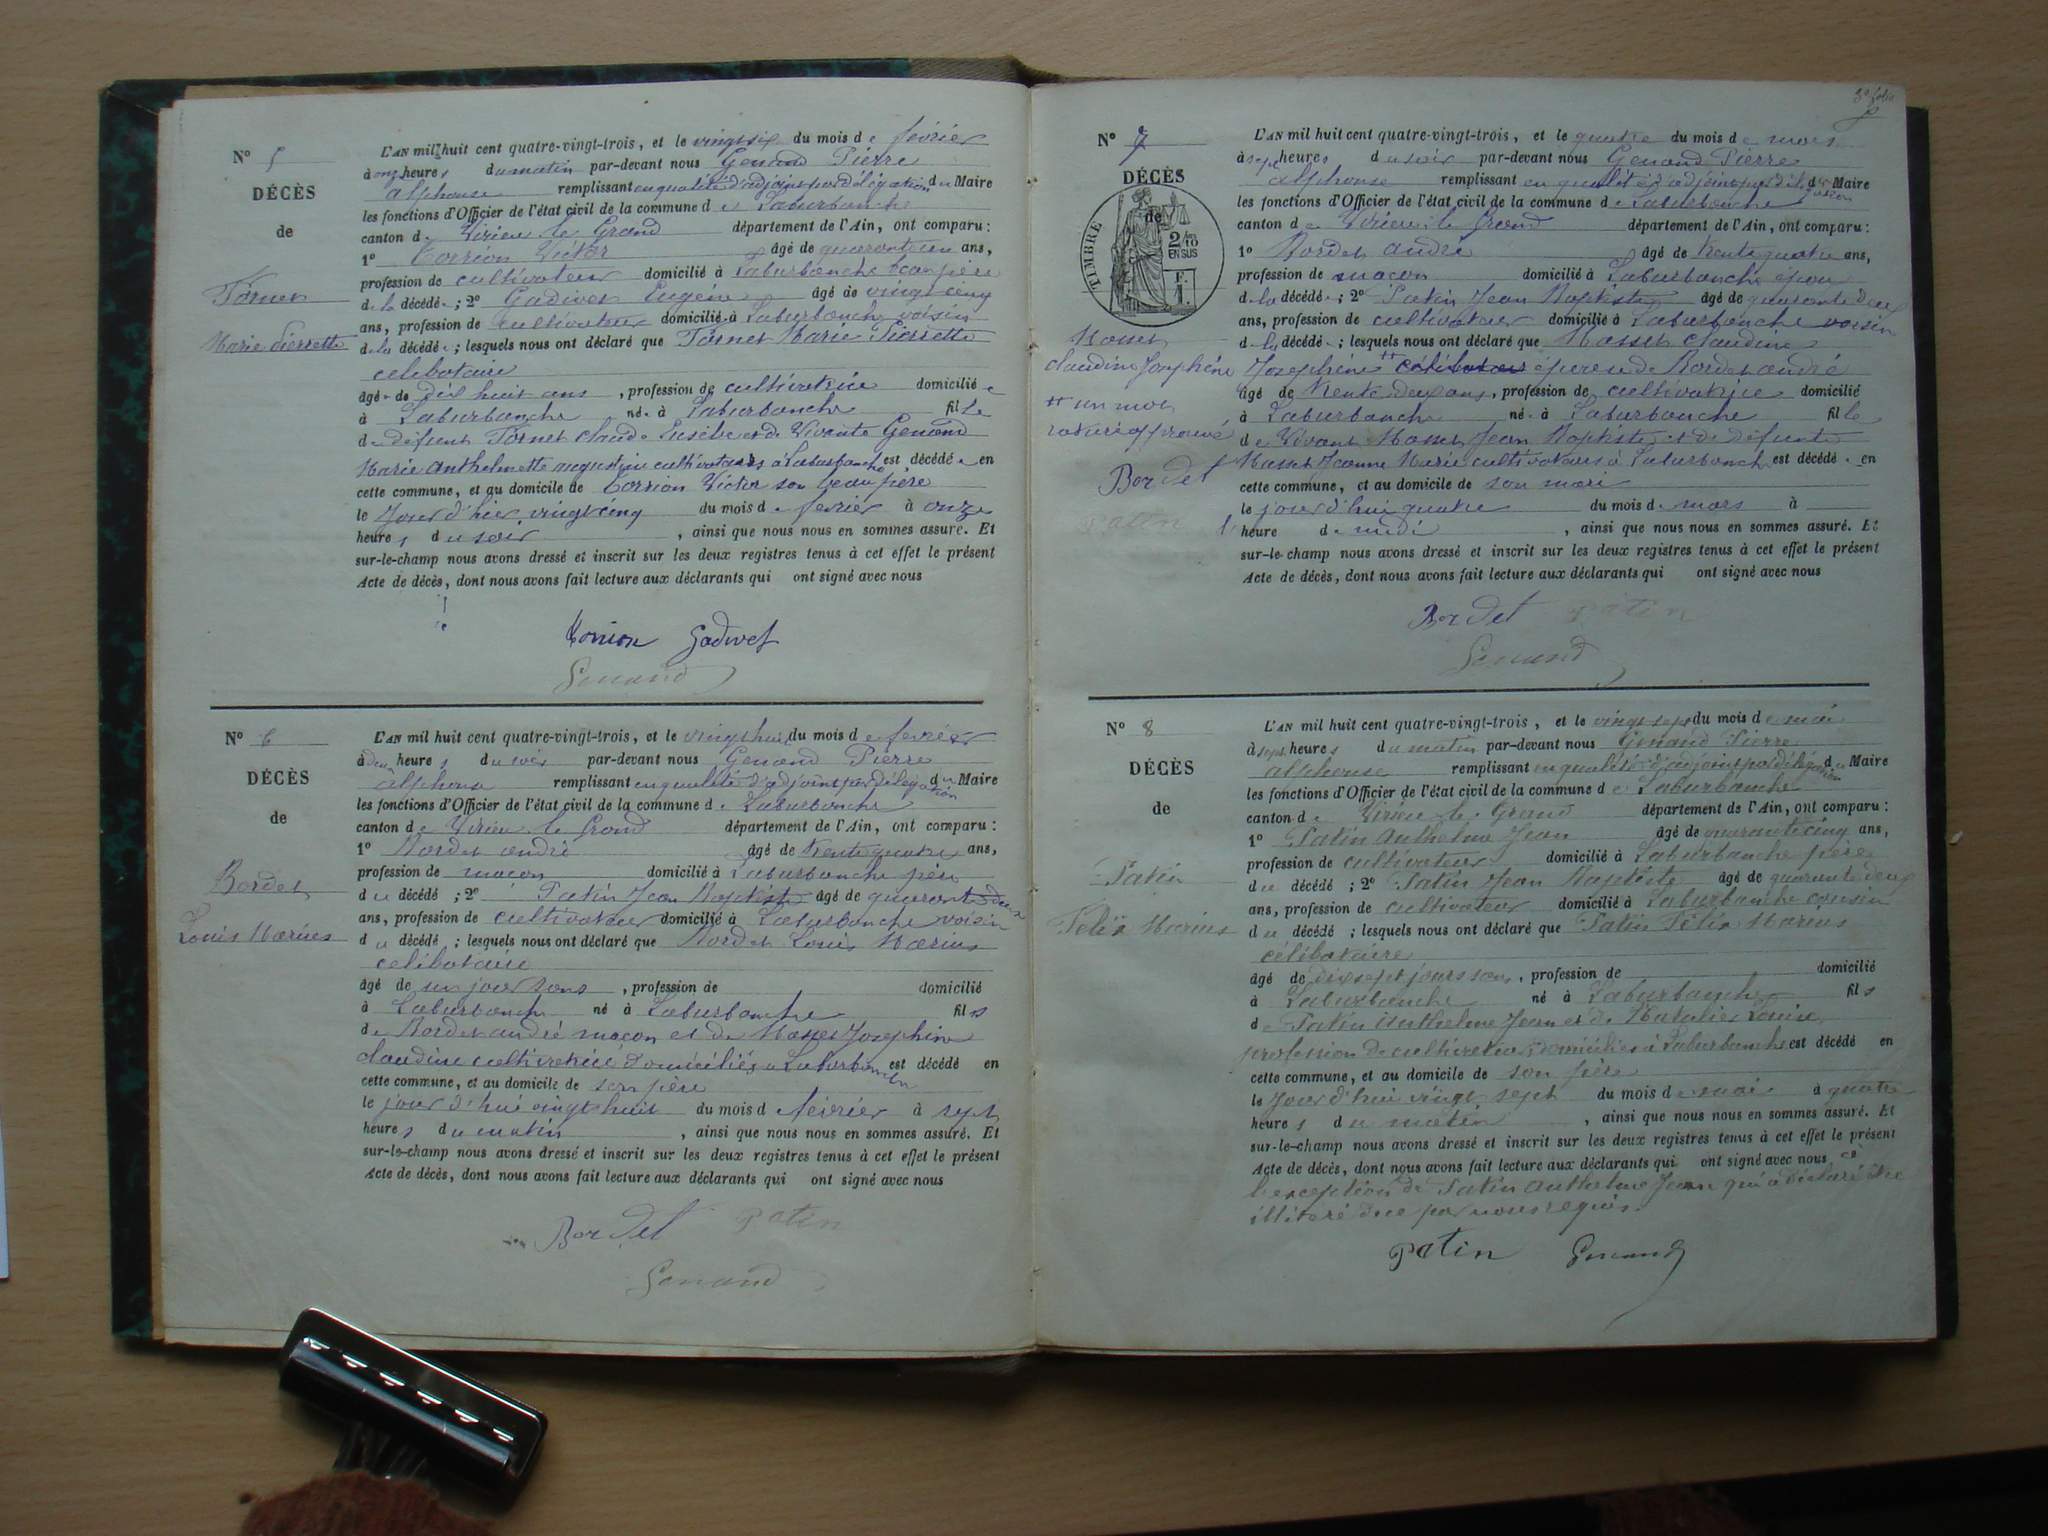 N° 5
DÉCÈS
de
Tornet
Marie Pierrette
L'AN mil huit cent quatre-vingt-trois, et le vingt six du mois de fevrier
à onze heures du matin par-devant nous Genand Pierre
alphonse remplissant en qualité d'adjoint par délégation du Maire
les fonctions d'Officier de l'état civil de la commune de Laburbanche
canton de Virieu le Grand département de l'Ain, ont comparu :
1° Torrion Victor âgé de quarante un ans,
profession de cultivateur domicilié à Laburbanche beau père
de la décédée ; 2° Gadivet Eugène âgé de vingt cinq
ans, profession de cultivateur domicilié à Laburbanche voisin
de la décédée ; lesquels nous ont déclaré que Tornet Marie Pierrette
celibataire
âgée de dix huit ans, profession de cultivatrice domiciliée
à Laburbanche née à Laburbanche fille
de defunt Tornet claude Eusèbe et de Vivante Genand
Marie Anthelmette augustine cultivateurs à Laburbanche est décédée en
cette commune, et au domicile de Torrion Victor son beau père
le jour d'hier vingt cinq du mois de fevrier à onze
heures du soir, ainsi que nous nous en sommes assuré. Et
sur-le-champ nous avons dressé et inscrit sur les deux registres tenus à cet effet le présent
Acte de décès, dont nous avons fait lecture aux déclarants qui ont signé avec nous
Torrion Gadivet
Genand
N° 6
DÉCÈS
de
Bordet
Louis Marius
L'AN mil huit cent quatre-vingt-trois, et le vingt huit du mois de fevrier
à deux heures du soir par-devant nous Genand Pierre
alphonse remplissant en qualité d'adjoint par délégation du Maire
les fonctions d'Officier de l'état civil de la commune de Laburbanche
canton de Virieu le Grand département de l'Ain, ont comparu :
1° Bordet andré âgé de trente quatre ans,
profession de maçon domicilié à Laburbanche père
du décédé ; 2° Patin Jean Baptiste âgé de quarante deux
ans, profession de cultivateur domicilié à Laburbanche voisin
du décédé ; lesquels nous ont déclaré que Bordet Louis Marius
celibataire
âgé de un jour sans, profession de domicilié
à Laburbanche né à Laburbanche fils
de Bordet andré maçon et de Masset Josephine
claudine cultivatrice domiciliés à Laburbanche est décédé en
cette commune, et au domicile de son père
le jour d'hui vingt huit du mois de février à sept
heures du matin, ainsi que nous nous en sommes assuré. Et
sur-le-champ nous avons dressé et inscrit sur les deux registres tenus à cet effet le présent
Acte de décès, dont nous avons fait lecture aux déclarants qui ont signé avec nous
Bordet Patin
Genand
3e folio
N° 7
DÉCÈS
de
TIMBRE
2/10
EN SUS
Masset
claudine Josephine
++ un mot
raturé approuvé
Bordet
Patin
L'AN mil huit cent quatre-vingt-trois, et le quatre du mois de mars
à sept heures du soir par-devant nous Genand Pierre
alphonse remplissant en qualité d'adjoint par délégation du Maire
les fonctions d'Officier de l'état civil de la commune de Laburbanche
canton de Virieu le Grand département de l'Ain, ont comparu :
1° Bordet andré âgé de trente quatre ans,
profession de maçon domicilié à Laburbanche époux
de la décédée ; 2° Patin Jean Baptiste âgé de quarante deux
ans, profession de cultivateur domicilié à Laburbanche voisin
de la décédée ; lesquels nous ont déclaré que Masset claudine
Josephine ++ célibataire épouse de Bordet andré
âgée de trente deux ans, profession de cultivatrice domicilié
à Laburbanche née à Laburbanche fille
de Vivant Masset Jean Baptiste et de défunte
Masset Jeanne Marie cultivateurs à Laburbanche est décédée en
cette commune, et au domicile de son mari
le jour d'hui quatre du mois de mars à
l'heure de midi, ainsi que nous nous en sommes assuré. Et
sur-le-champ nous avons dressé et inscrit sur les deux registres tenus à cet effet le présent
Acte de décès, dont nous avons fait lecture aux déclarants qui ont signé avec nous
Bordet Patin
Genand
N° 8
DÉCÈS
de
Patin
Félix Marius
L'AN mil huit cent quatre-vingt-trois, et le vingt sept du mois de mai
à sept heures du matin par-devant nous Genand Pierre
alphonse remplissant en qualité d'adjoint par délégation du Maire
les fonctions d'Officier de l'état civil de la commune de Laburbanche
canton de Virieu le Grand département de l'Ain, ont comparu :
1° Patin Anthelme Jean âgé de quarante cinq ans,
profession de cultivateur domicilié à Laburbanche père
du décédé ; 2° Patin Jean Baptiste âgé de quarante deux
ans, profession de cultivateur domicilié à Laburbanche cousin
du décédé ; lesquels nous ont déclaré que Patin Félix Marius
célibataire
âgé de dix sept jours sans, profession de domicilié
à Laburbanche né à Laburbanche fils
de Patin Anthelme Jean et de Louise
profession de cultivateurs domiciliés à Laburbanche est décédé en
cette commune, et au domicile de son père
le jour d'hui vingt sept du mois de mai à quatre
heures du matin, ainsi que nous nous en sommes assuré. Et
sur-le-champ nous avons dressé et inscrit sur les deux registres tenus à cet effet le présent
Acte de décès, dont nous avons fait lecture aux déclarants qui ont signé avec nous à
l'exception de Patin Anthelme Jean qui a déclaré être
illiteré de ce par nous requis.
Patin Genand